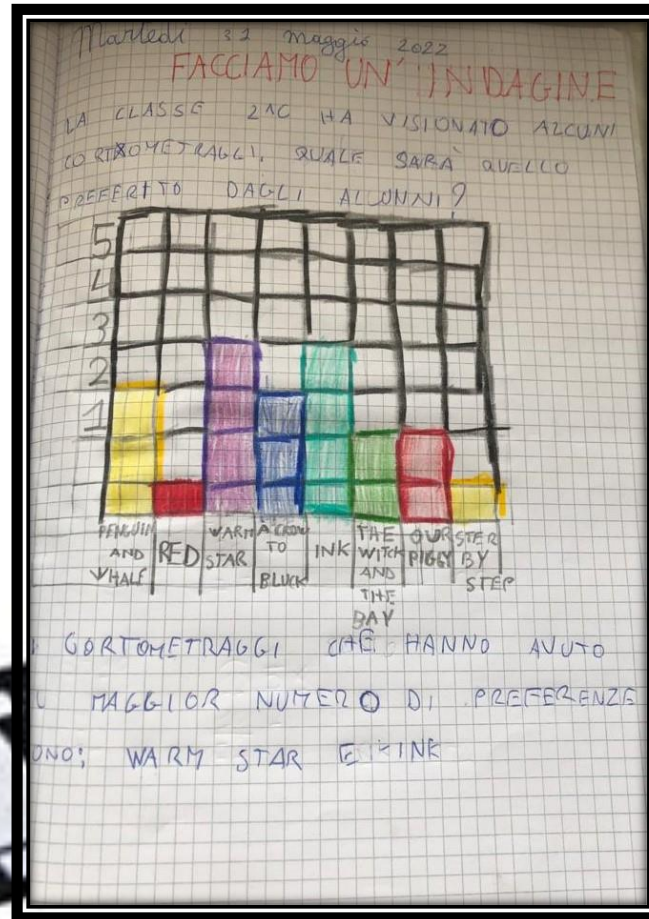 Martedì 31 maggio 2022
FACCIAMO UN' INDAGINE
LA CLASSE 2^C HA VISIONATO ALCUNI
CORTOMETRAGGI, QUALE SARÀ QUELLO
PREFERITO DAGLI ALUNNI?
5
4
3
2
1
PENGUIN AND WHALE
RED
WARM STAR
A CROW TO BLUCK
INK
THE WITCH AND THE BAY
OUR PIGGY
STER BY STEP
I CORTOMETRAGGI CHE HANNO AVUTO
MAGGIOR NUMERO DI PREFERENZE
ONO: WARM STAR E INK